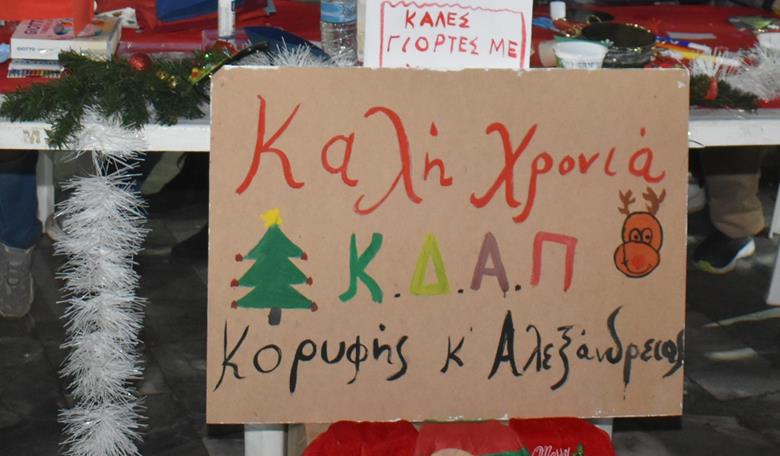 GIOTTO
ΚΑΛΕΣ
ΓΙΟΡΤΕΣ ΜΕ
Καλή Χρονιά
Κ.Δ.Α.Π
Κορυφής κ' Αλεξάνδρειας
Merry